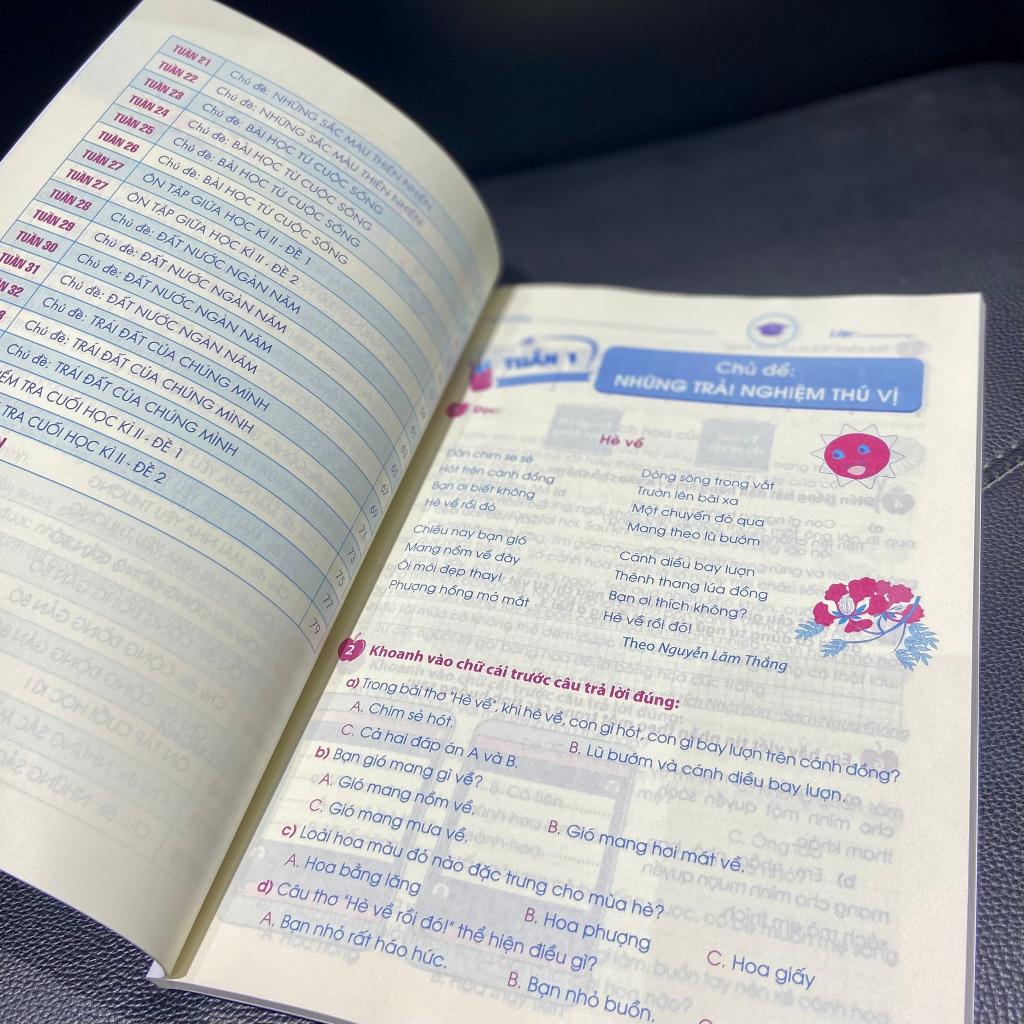 TUẦN 21 Chủ đề: NHỮNG SẮC MÀU THIÊN NHIÊN
TUẦN 22 Chủ đề: NHỮNG SẮC MÀU THIÊN NHIÊN
TUẦN 23 Chủ đề: BÀI HỌC TỪ CUỘC SỐNG
TUẦN 24 Chủ đề: BÀI HỌC TỪ CUỘC SỐNG
TUẦN 25 Chủ đề: BÀI HỌC TỪ CUỘC SỐNG
TUẦN 26 Chủ đề: BÀI HỌC TỪ CUỘC SỐNG
TUẦN 27 ÔN TẬP GIỮA HỌC KÌ II - ĐỀ 1
TUẦN 27 ÔN TẬP GIỮA HỌC KÌ II - ĐỀ 2
TUẦN 28 Chủ đề: ĐẤT NƯỚC NGÀN NĂM
TUẦN 29 Chủ đề: ĐẤT NƯỚC NGÀN NĂM
TUẦN 30 Chủ đề: ĐẤT NƯỚC NGÀN NĂM
TUẦN 31 Chủ đề: ĐẤT NƯỚC NGÀN NĂM
32 Chủ đề: TRÁI ĐẤT CỦA CHÚNG MÌNH
Chủ đề: TRÁI ĐẤT CỦA CHÚNG MÌNH 67
Chủ đề: TRÁI ĐẤT CỦA CHÚNG MÌNH 69
TRA CUỐI HỌC KÌ II - ĐỀ 1
TRA CUỐI HỌC KÌ II - ĐỀ 2
71
73
75
77
79
TUẦN 1
Chủ đề:
NHỮNG TRẢI NGHIỆM THÚ VỊ
Đọc:
Hè về
Đàn chim se sẻ
Hót trên cánh đồng
Bạn ơi biết không
Hè về rồi đó
Chiều nay bạn gió
Mang nồm về đây
Ôi mới đẹp thay!
Phượng hồng mở mắt
Dòng sông trong vắt
Trườn lên bãi xa
Một chuyến đò qua
Mang theo lũ bướm
Cánh diều bay lượn
Thênh thang lúa đồng
Bạn ơi thích không?
Hè về rồi đó!
Theo Nguyễn Lãm Thắng
2 Khoanh vào chữ cái trước câu trả lời đúng:
a) Trong bài thơ "Hè về", khi hè về, con gì hót, con gì bay lượn trên cánh đồng?
A. Chim sẻ hót. B. Lũ bướm và cánh diều bay lượn.
C. Cả hai đáp án A và B.
b) Bạn gió mang gì về?
A. Gió mang nồm về. B. Gió mang hơi mát về.
C. Gió mang mưa về.
c) Loài hoa màu đỏ nào đặc trưng cho mùa hè?
A. Hoa bằng lăng B. Hoa phượng C. Hoa giấy
d) Câu thơ "Hè về rồi đó!" thể hiện điều gì?
A. Bạn nhỏ rất háo hức. B. Bạn nhỏ buồn.